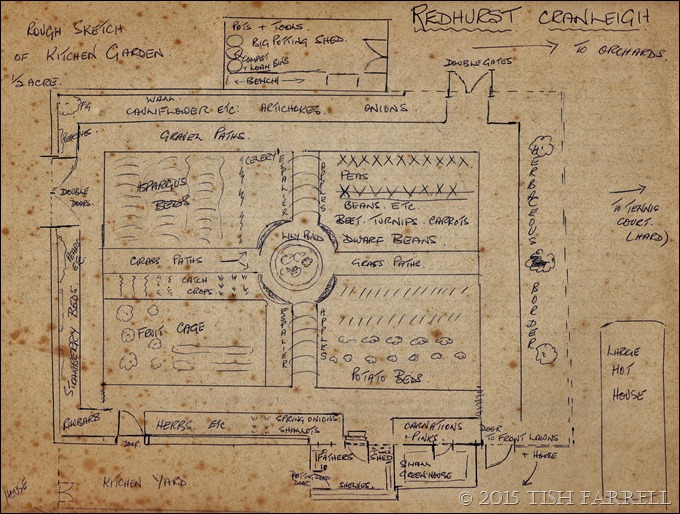 ROUGH SKETCH
OF KITCHEN GARDEN
1/2 ACRE.
REDHURST CRANLEIGH
POTS + TOOLS
BIG POTTING SHED.
COMPOST
+ LOAM BINS
← BENCH →
DOUBLE GATES
TO ORCHARDS.
WALL
FIG
CAULIFLOWER ETC. ARTICHOKES ONIONS.
GRAVEL PATHS.
PEACHES
DOUBLE
DOORS.
ASPARGUS
BEDS
CELERY
ESPALIER
APPLES
PEAS
BEANS. ETC.
BEET. TURNIPS. CARROTS
DWARF BEANS.
LILY POND
HERBACEOUS BORDER
TO TENNIS
COURT.
(HARD)
GRASS PATHS
GRASS PATHS.
CATCH
CROPS.
FRUIT CAGE
ESPALIER
APPLES
POTATO BEDS
STRAWBERRY BEDS
PEARS
LARGE
HOT
HOUSE
RHUBARB
DOOR
HERBS. ETC
SPRING ONIONS.
SHALLOTS
CARNATIONS
+ PINKS
DOOR
TO FRONT LAWNS
+ HOUSE
FATHERS
SHED
SMALL
GREENHOUSE
SHELVES.
KITCHEN YARD
HOUSE
© 2015 TISH FARRELL